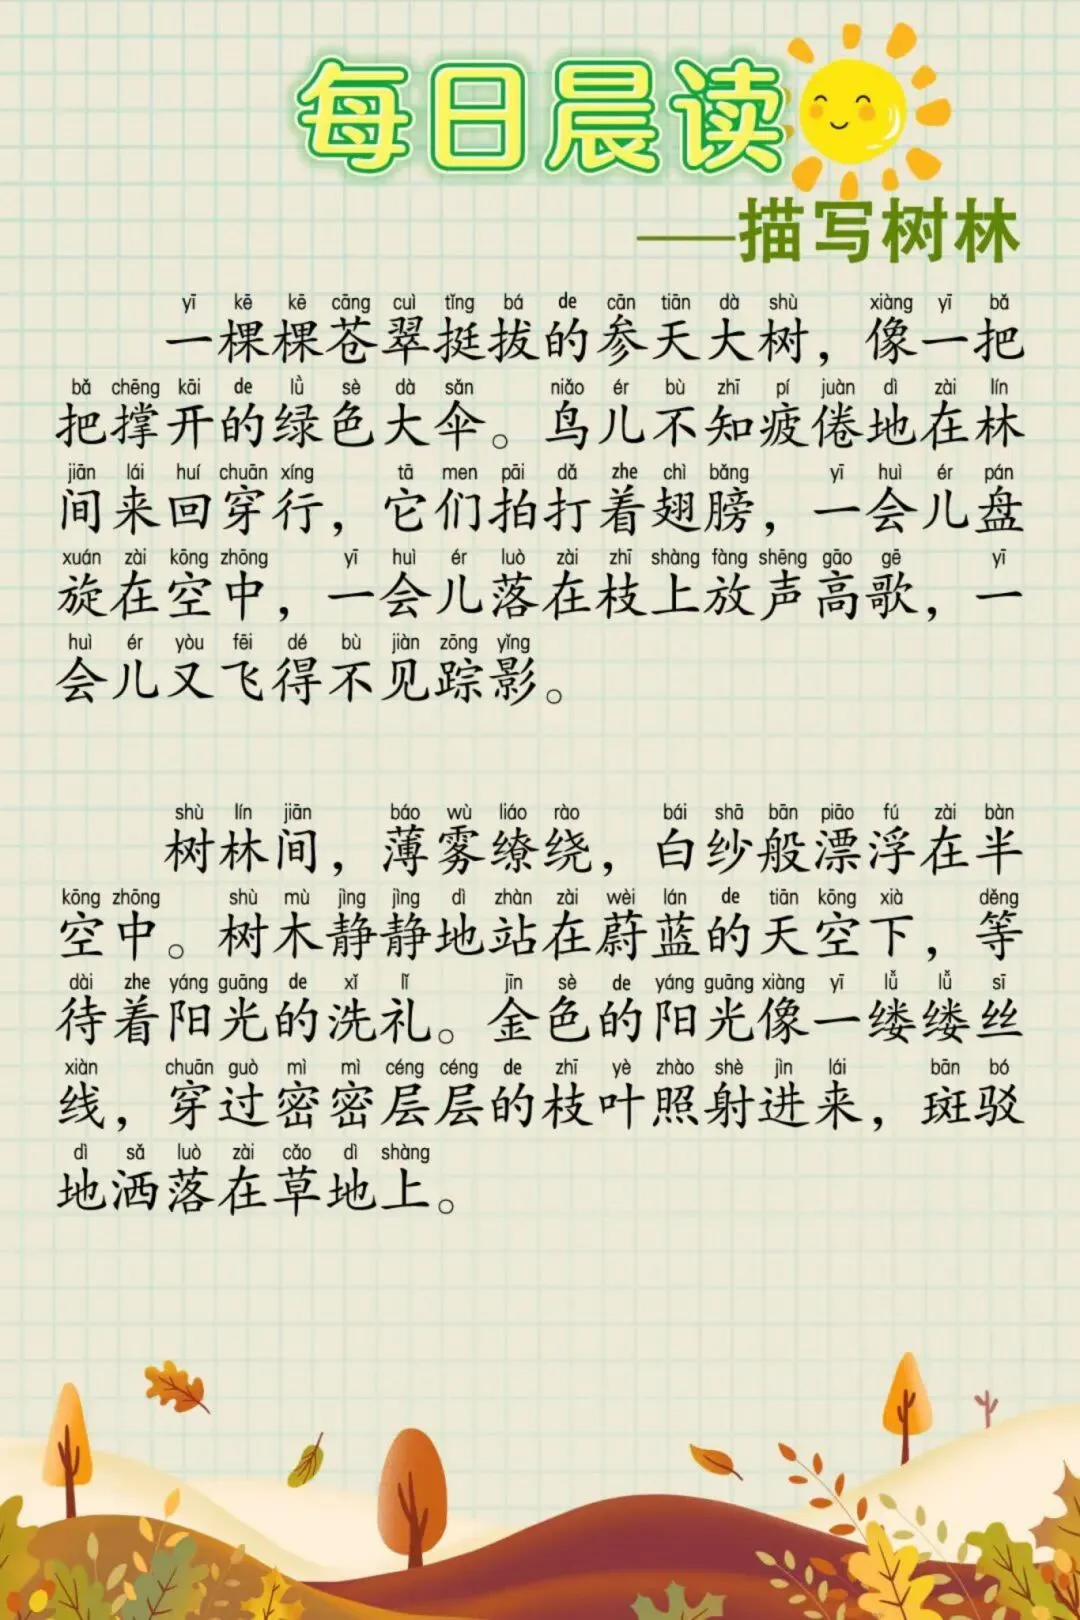 每日晨读
——描写树林
yī kē kē cāng cuì tǐng bá de cān tiān dà shù xiàng yī bǎ
一棵棵苍翠挺拔的参天大树，像一把
bǎ chēng kāi de lǜ sè dà sǎn niǎo ér bù zhī pí juàn dì zài lín
把撑开的绿色大伞。鸟儿不知疲倦地在林
jiān lái huí chuān xíng tā men pāi dǎ zhe chì bǎng yī huì ér pán
间来回穿行，它们拍打着翅膀，一会儿盘
xuán zài kōng zhōng yī huì ér luò zài zhī shàng fàng shēng gāo gē yī
旋在空中，一会儿落在枝上放声高歌，一
huì ér yòu fēi dé bù jiàn zōng yǐng
会儿又飞得不见踪影。
shù lín jiān báo wù liáo rào bái shā bān piāo fú zài bàn
树林间，薄雾缭绕，白纱般漂浮在半
kōng zhōng shù mù jìng jìng dì zhàn zài wèi lán de tiān kōng xià děng
空中。树木静静地站在蔚蓝的天空下，等
dài zhe yáng guāng de xǐ lǐ jīn sè de yáng guāng xiàng yī lǚ lǚ sī
待着阳光的洗礼。金色的阳光像一缕缕丝
xiàn chuān guò mì mì céng céng de zhī yè zhào shè jìn lái bān bó
线，穿过密密层层的枝叶照射进来，斑驳
dì sǎ luò zài cǎo dì shàng
地洒落在草地上。